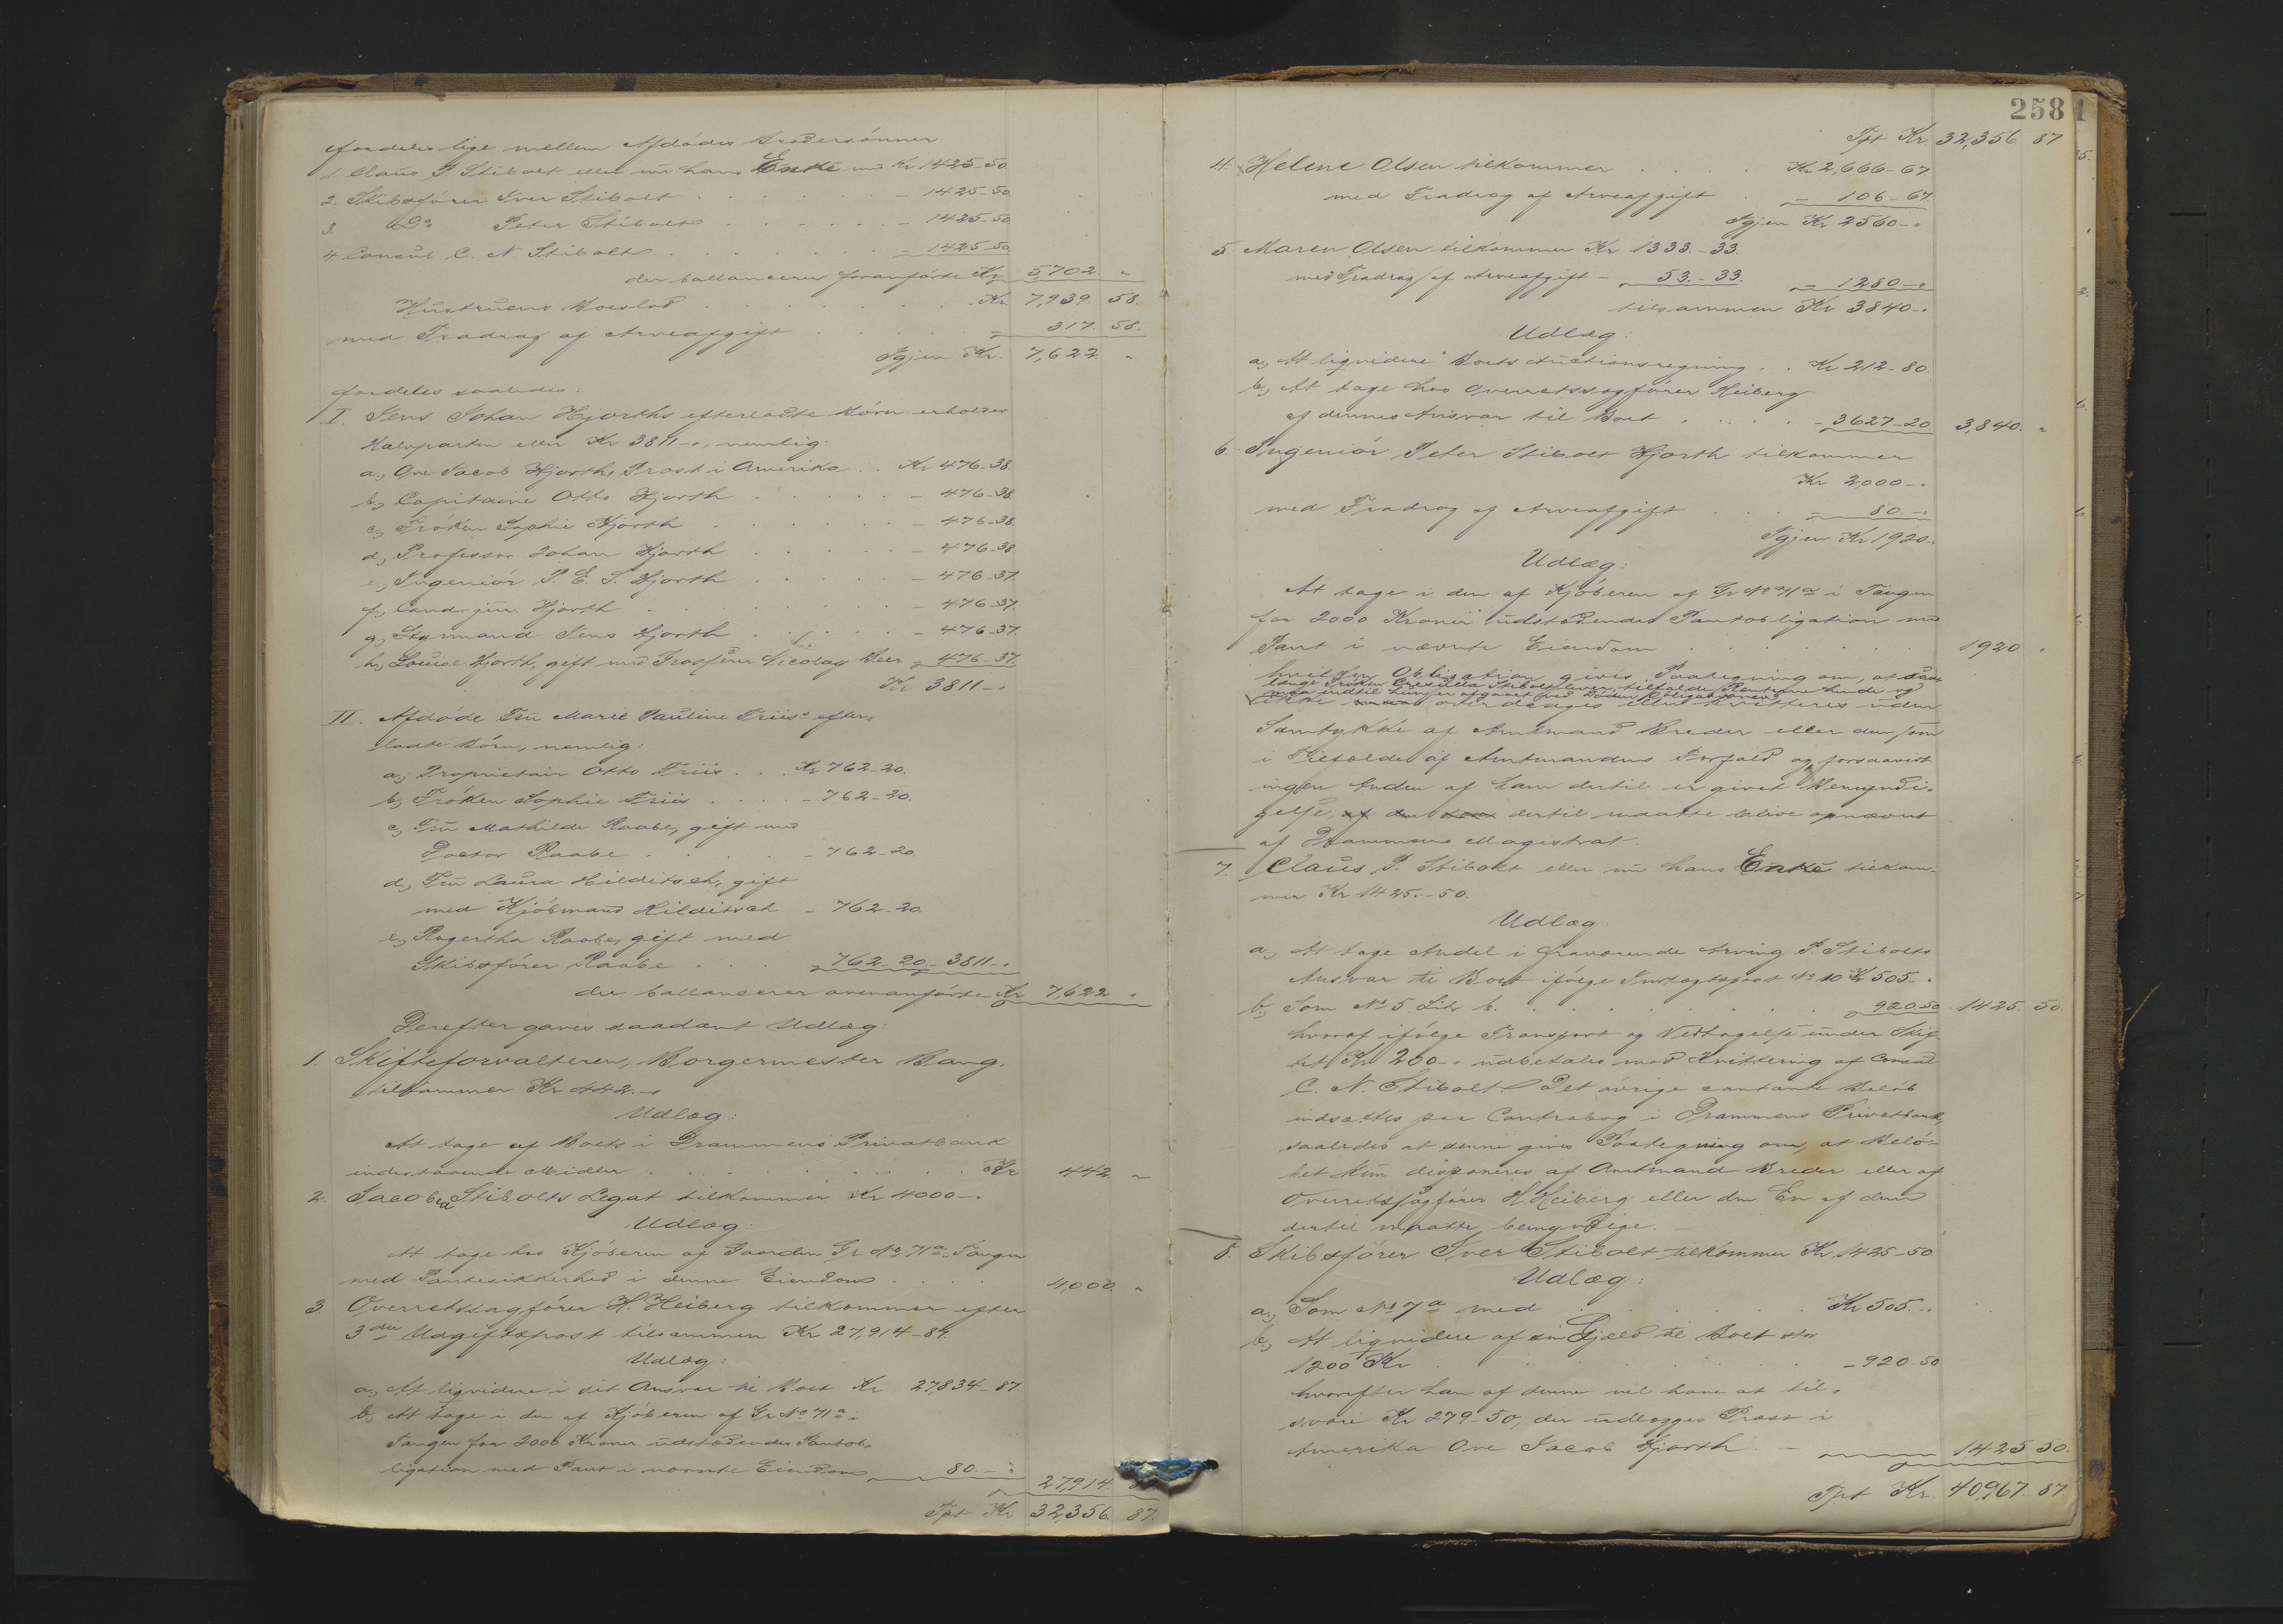 fordeles lige mellem Afdödes Brodersönner
1. Claus P. Stibolt eller nu hans Enke med Kr 1425-50
2. Skibsförer Iver Stibolt . . . . . - 1425-50
3. Do Peter Stibolt . . . . . - 1425-50
4. Consul C. N. Stibolt . . . . . - 1425-50
der ballancerer foranförte Kr 5702 "
Hustruens Boeslod . . . . . Kr 7,939. 58.
med Fradrag af Arveafgift . . . . . - 317. 58.
Igjen Kr. 7,622 "
fordeles saaledes:
I. Jens Johan Hjorths efterladte Börn erholder
Halvparten eller Kr 3811-", nemlig:
a, Ove Jacob Hjorth, Prost i Amerika . . Kr 476-38.
b, Capitaine Otto Hjorth . . . . . - 476-38.
c, Fröken Sophie Hjorth . . . . . - 476-38
d, Professor Johan Hjorth . . . . . - 476-38
e, Ingeniör P. E. S. Hjorth . . . . . - 476-37.
f, Cand. jur. Hjorth . . . . . - 476-37.
g, Styrmand Jens Hjorth . . . . . - 476-37.
h, Louise Hjorth, gift med Nicolay Beer - 476-37.
Kr 3811-"
II. Afdöde Fru Marie Pauline Friis' efter-
ladte Börn, nemlig:
a, Proprietair Otto Friis . . . Kr 762-20.
b, Fröken Sophie Friis . . . . - 762-20.
c, Fru Mathilde Raabe, gift med
Doctor Raabe . . . . . - 762-20.
d, Fru Laura Hilditsch, gift
med Kjöbmand Hilditsch - 762-20.
e, Raabe, gift med
Skibsförer Raabe . . . 762-20 - 3811-"
der ballancerer ovenanförte Kr 7,622 "
Derefter gaves saadant Udlæg:
1. Skifteforvalteren, Borgermester Bang,
tilkommer Kr 442-"
Udlæg:
At tage af Boets i Drammens Privatbank
indestaaende Midler . . . . . Kr 442 "
2. Jacobea Stibolts Legat tilkommer Kr 4000-"
Udlæg:
At tage hos Kjöberen af Gaarden Gr No 71a Tangen
med Pantesikkerhed i denne Eiendom . . . . 4,000. "
3. Overretssagförer H. Heiberg tilkommer efter
3die Udgiftspost tilsammen Kr 27,914-87.
Udlæg:
a, At liqvidere i sit Ansvar til Boet Kr 27,834-87
b, At tage i den af Kjöberen af Gr No 71a i
Tangen for 2000 Kroner udstedendes Pantob-
ligation med Pant i nævnte Eiendom 80.-" 27,914. 87.
Tpt Kr 32,356. 87.
258
Tpt Kr 32,356 87
4. Helene Olsen tilkommer . . . . Kr 2,666-67
med Fradrag af Arveafgift . - 106-67.
Igjen Kr 2560-"
5. Maren Olsen tilkommer Kr 1333.-33.
med Fradrag af Arveafgift - 53.-33. - 1280-"
tilsammen Kr 3840-"
Udlæg:
a, At liqvidere Boets Auctionsregning . . Kr 212-80.
b, At tage hos Overretssagförer Heiberg
af dennes Ansvar til Boet . . . . - 3627-20 3,840. "
6. Ingeniör Peter Stibolt Hjorth tilkommer
Kr 2,000-"
med Fradrag af Arveafgift . . . - 80-"
Igjen Kr 1920-"
Udlæg:
At tage i den af Kjöberen af Gr No 71a i Tangen
for 2000 Kroner udstedendes Pantobligation med
Pant i nævnte Eiendom . . . . . 1920 "
hvilken Obligation gives Paategning om, at saa
længe Fröken Stibolt lever, tilfalde Renterne hende og
maa indtil hun er afgaaet ved Döden Obligationen
ikke overdrages eller kvitteres uden
Samtykke af Amtmand Breder eller den som
i Tilfælde af Amtmandens Forfald og forsaavidt
ingen Anden af ham dertil er givet Bemyndi-
gelse, dertil maatte blive opnævnt
af Drammens Magistrat.
7. Claus P. Stibolt eller nu hans Enke tilkom-
mer Kr 1425.-50.
Udlæg
a, At tage Andel i fraværende Arving P. Stibolts
Ansvar til Boet ifölge Indtægtspost No 10 Kr 505-"
b, Som No 5 Litr b. . . . . . 920-50 1425 50
hvoraf ifölge Transport og Vedtagelse under Skif-
tet Kr 200-" udbetales mod Kvittering af Consul
C. N. Stibolt. Det övrige contante Belöb
indsættes paa Contrabog i Drammens Privatbank,
saaledes at denne gives Paategning om, at Belö-
bet kun disponeres af Amtmand Breder eller af
Overretssagförer H. Heiberg eller den En af dem
dertil maatte bemyndige.
8. Skibsförer Iver Stibolt tilkommer Kr 1425-50
Udlæg:
a, Som No 7a med . . . . . Kr 505.-"
b, At liqvidere af sin Gjæld til Boet stor
1200 Kr . . . . . - 920-50
hvorefter han af denne vil have at til-
svare Kr 279-50, der udlægges Prost i
Amerika Ove Jacob Hjorth. - 1425 50.
Tpt Kr. 40,967. 87.